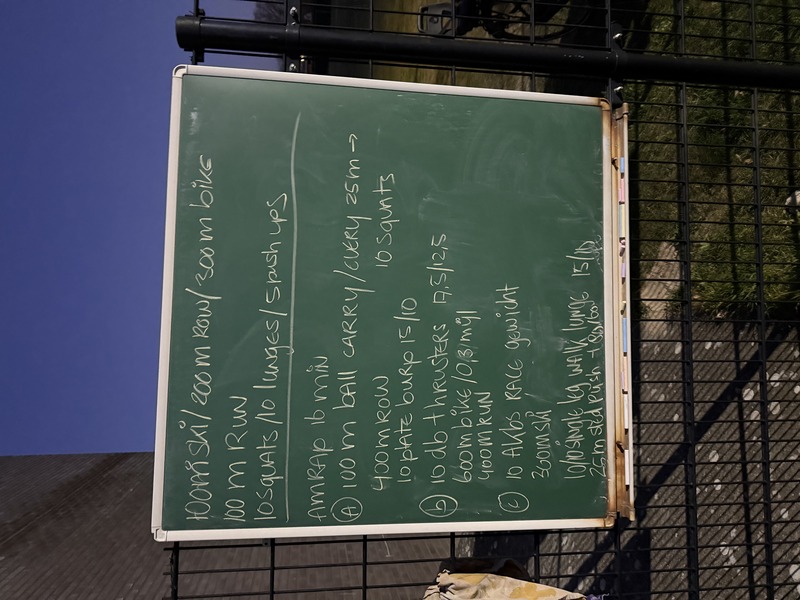 100m ski/200m ROW/300m bike
100 m RUN
10 squats/10 lunges/5 push ups
AMRAP 16 min
A 100m ball CARRY/EVERY 25m →
10 squats
400m ROW
10 plate burp 15/10
b 10 db thrusters 17,5/12,5
600m bike/0,3/
400m RUN
C 10 RACE gewicht
300m ski
10/10 single kg walk lunge 15/10
25m sled push +